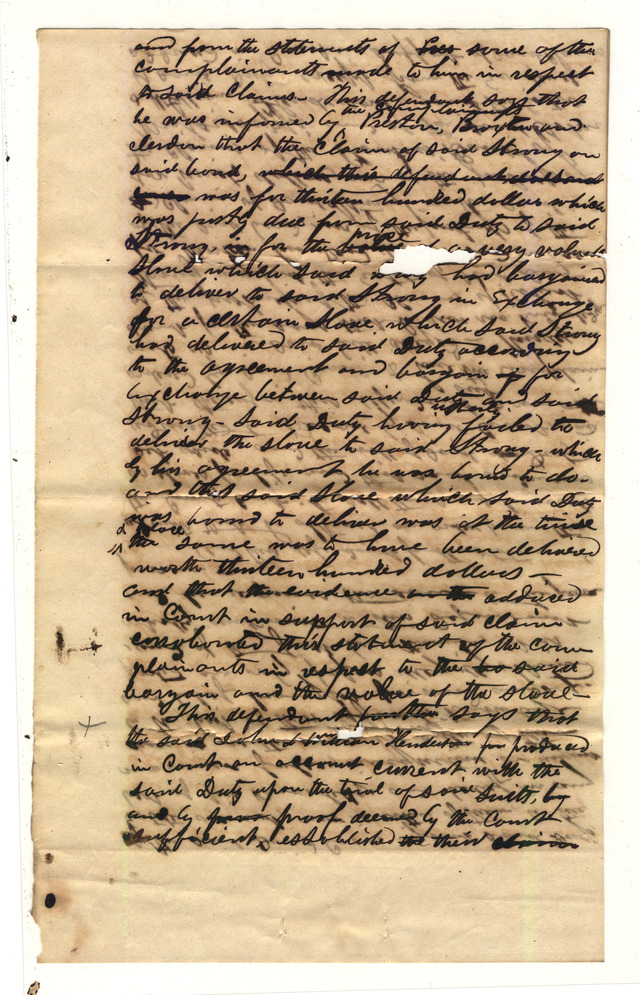 and from the statements of some of the
complainants made to him in respect
to said Claims. This defendant says that
he was informed by the complainants Preston,Броxton and
that the Claim of said Strong on
said bond, which this defendant
was for thirteen hundred dollars which
was justly due from said Duty to said
Strong, for the price of a very valuable
slave which said Duty had bargained
to deliver to said Strong in Exchange
for a certain slave which said Strong
had delivered to said Duty according
to the agreement and bargain for
Exchange between said Duty and said
Strong - said Duty having utterly failed to
deliver the slave to said Strong - which
by his agreement he was bound to do -
and that said slave which said Duty
was bound to deliver was at the time
& place
the same was to have been delivered
worth thirteen hundred dollars -
and that the evidence adduced
in Court in support of said claim
corroborated this statement of the com
plainants in respect to the said
bargain and the value of the slave -
This defendant further says that
the said John & William Henderson produced
in Court an account current with the
said Duty upon the trial of said Suits, by
and by proof deemed by the Court
sufficient, established their claim